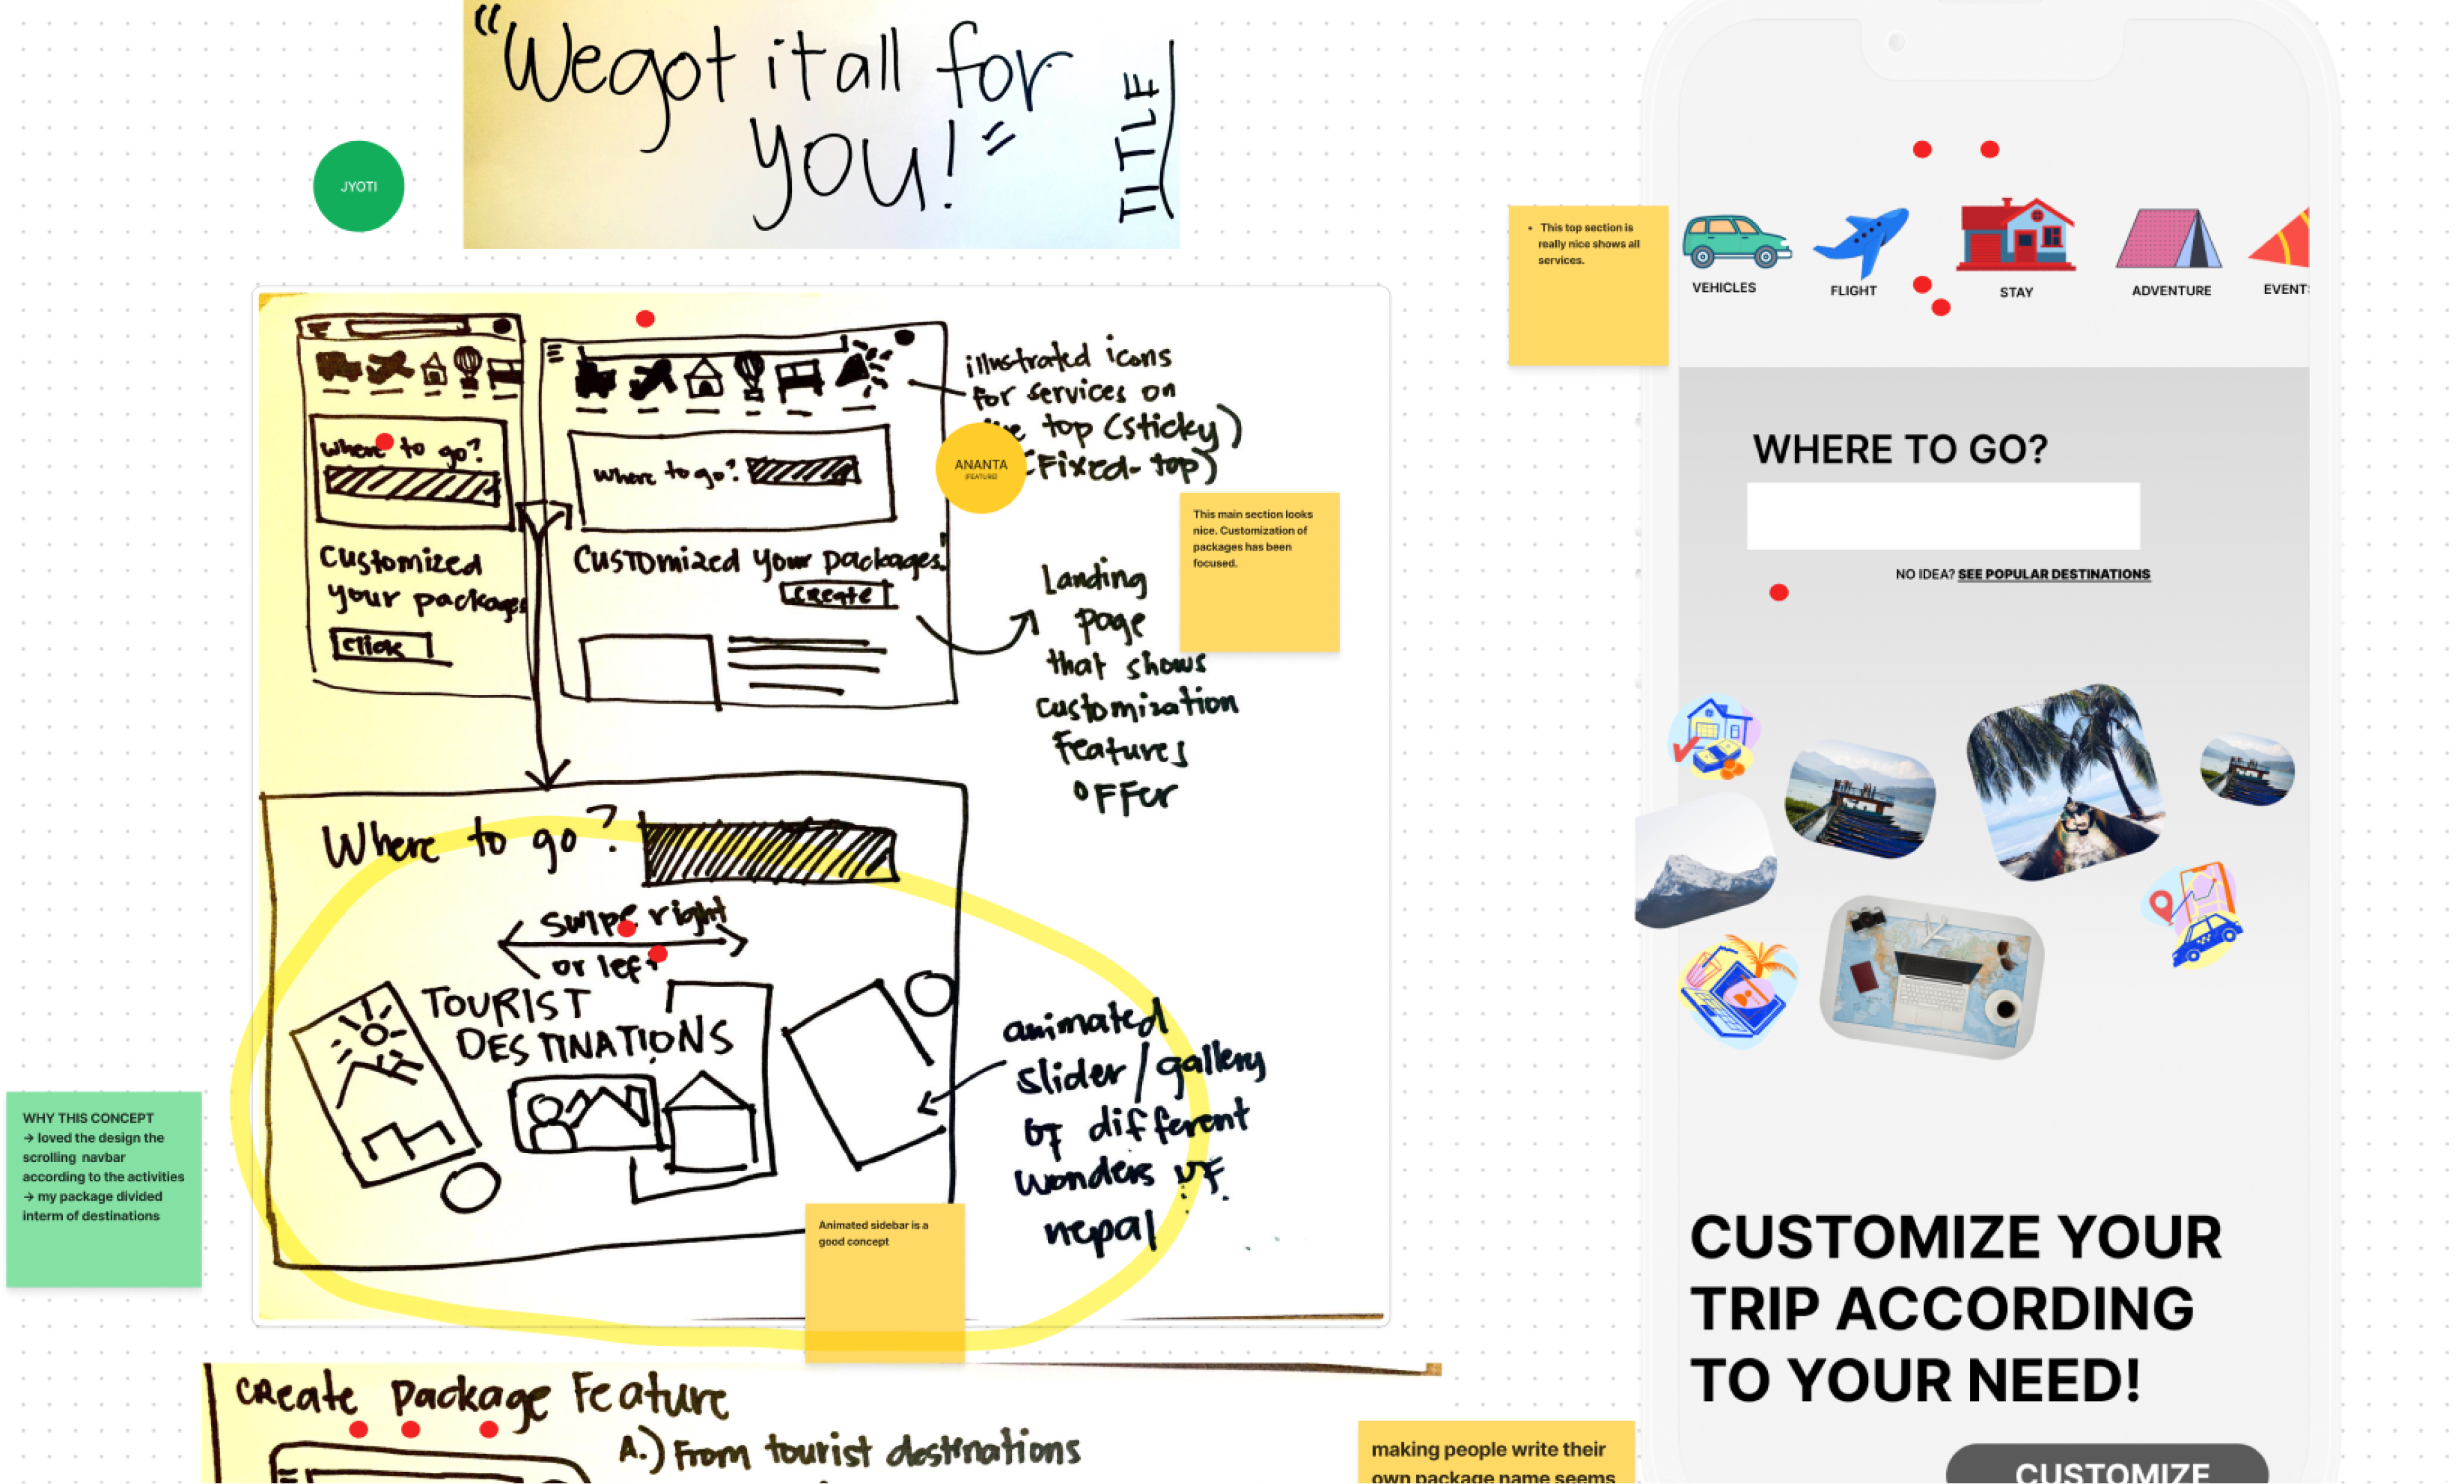 “We got it all for
you!”
TITLE
JYOTI
where to go?
Customized
your packages
click
where to go?
Customized your packages!
create
illustrated icons
for services on
top (sticky)
(Fixed-top)
ANANTA
(FEATURE)
This main section looks
nice. Customization of
packages has been
focused.
Landing
page
that shows
customization
Features
OFFer
Where to go?
swipe right
or left
TOURIST
DESTINATIONS
animated
slider/gallery
of different
wonders of
nepal
Animated sidebar is a
good concept
WHY THIS CONCEPT
→ loved the design the
scrolling navbar
according to the activities
→ my package divided
interm of destinations
create package Feature
A.) From tourist destinations
• This top section is
really nice shows all
services.
VEHICLES
FLIGHT
STAY
ADVENTURE
EVENT
WHERE TO GO?
NO IDEA? SEE POPULAR DESTINATIONS
CUSTOMIZE YOUR
TRIP ACCORDING
TO YOUR NEED!
CUSTOMIZE
making people write their
own package name seems